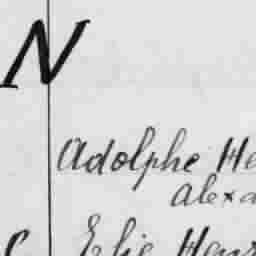 N
Adolphe He
alexa
C Elie Henr